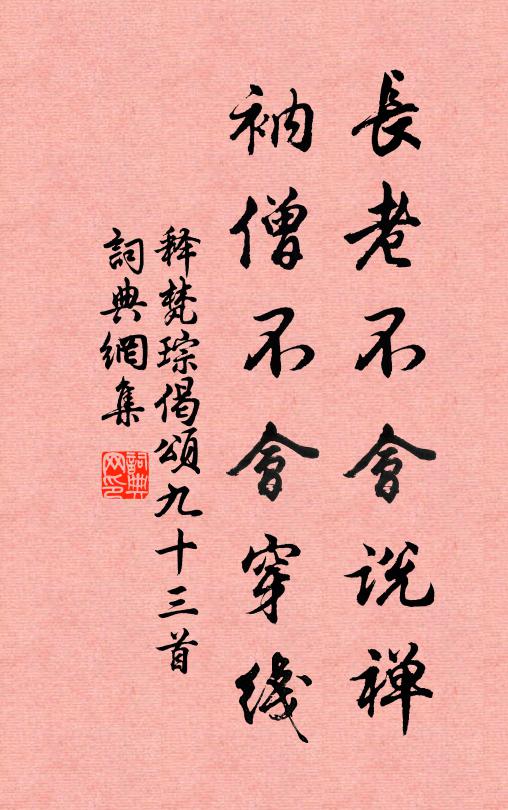 長老不會説禅
衲僧不會穿綫
释梵琮偈頌九十三首
詞典網集
詞典网印